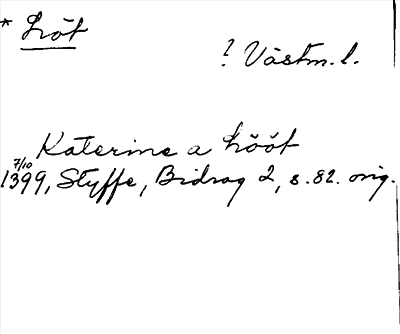 * Lööt
? Västm. l.
Katerine a Lööt
7/10
1399, Styffe, Bidrag 2, s. 82. orig.